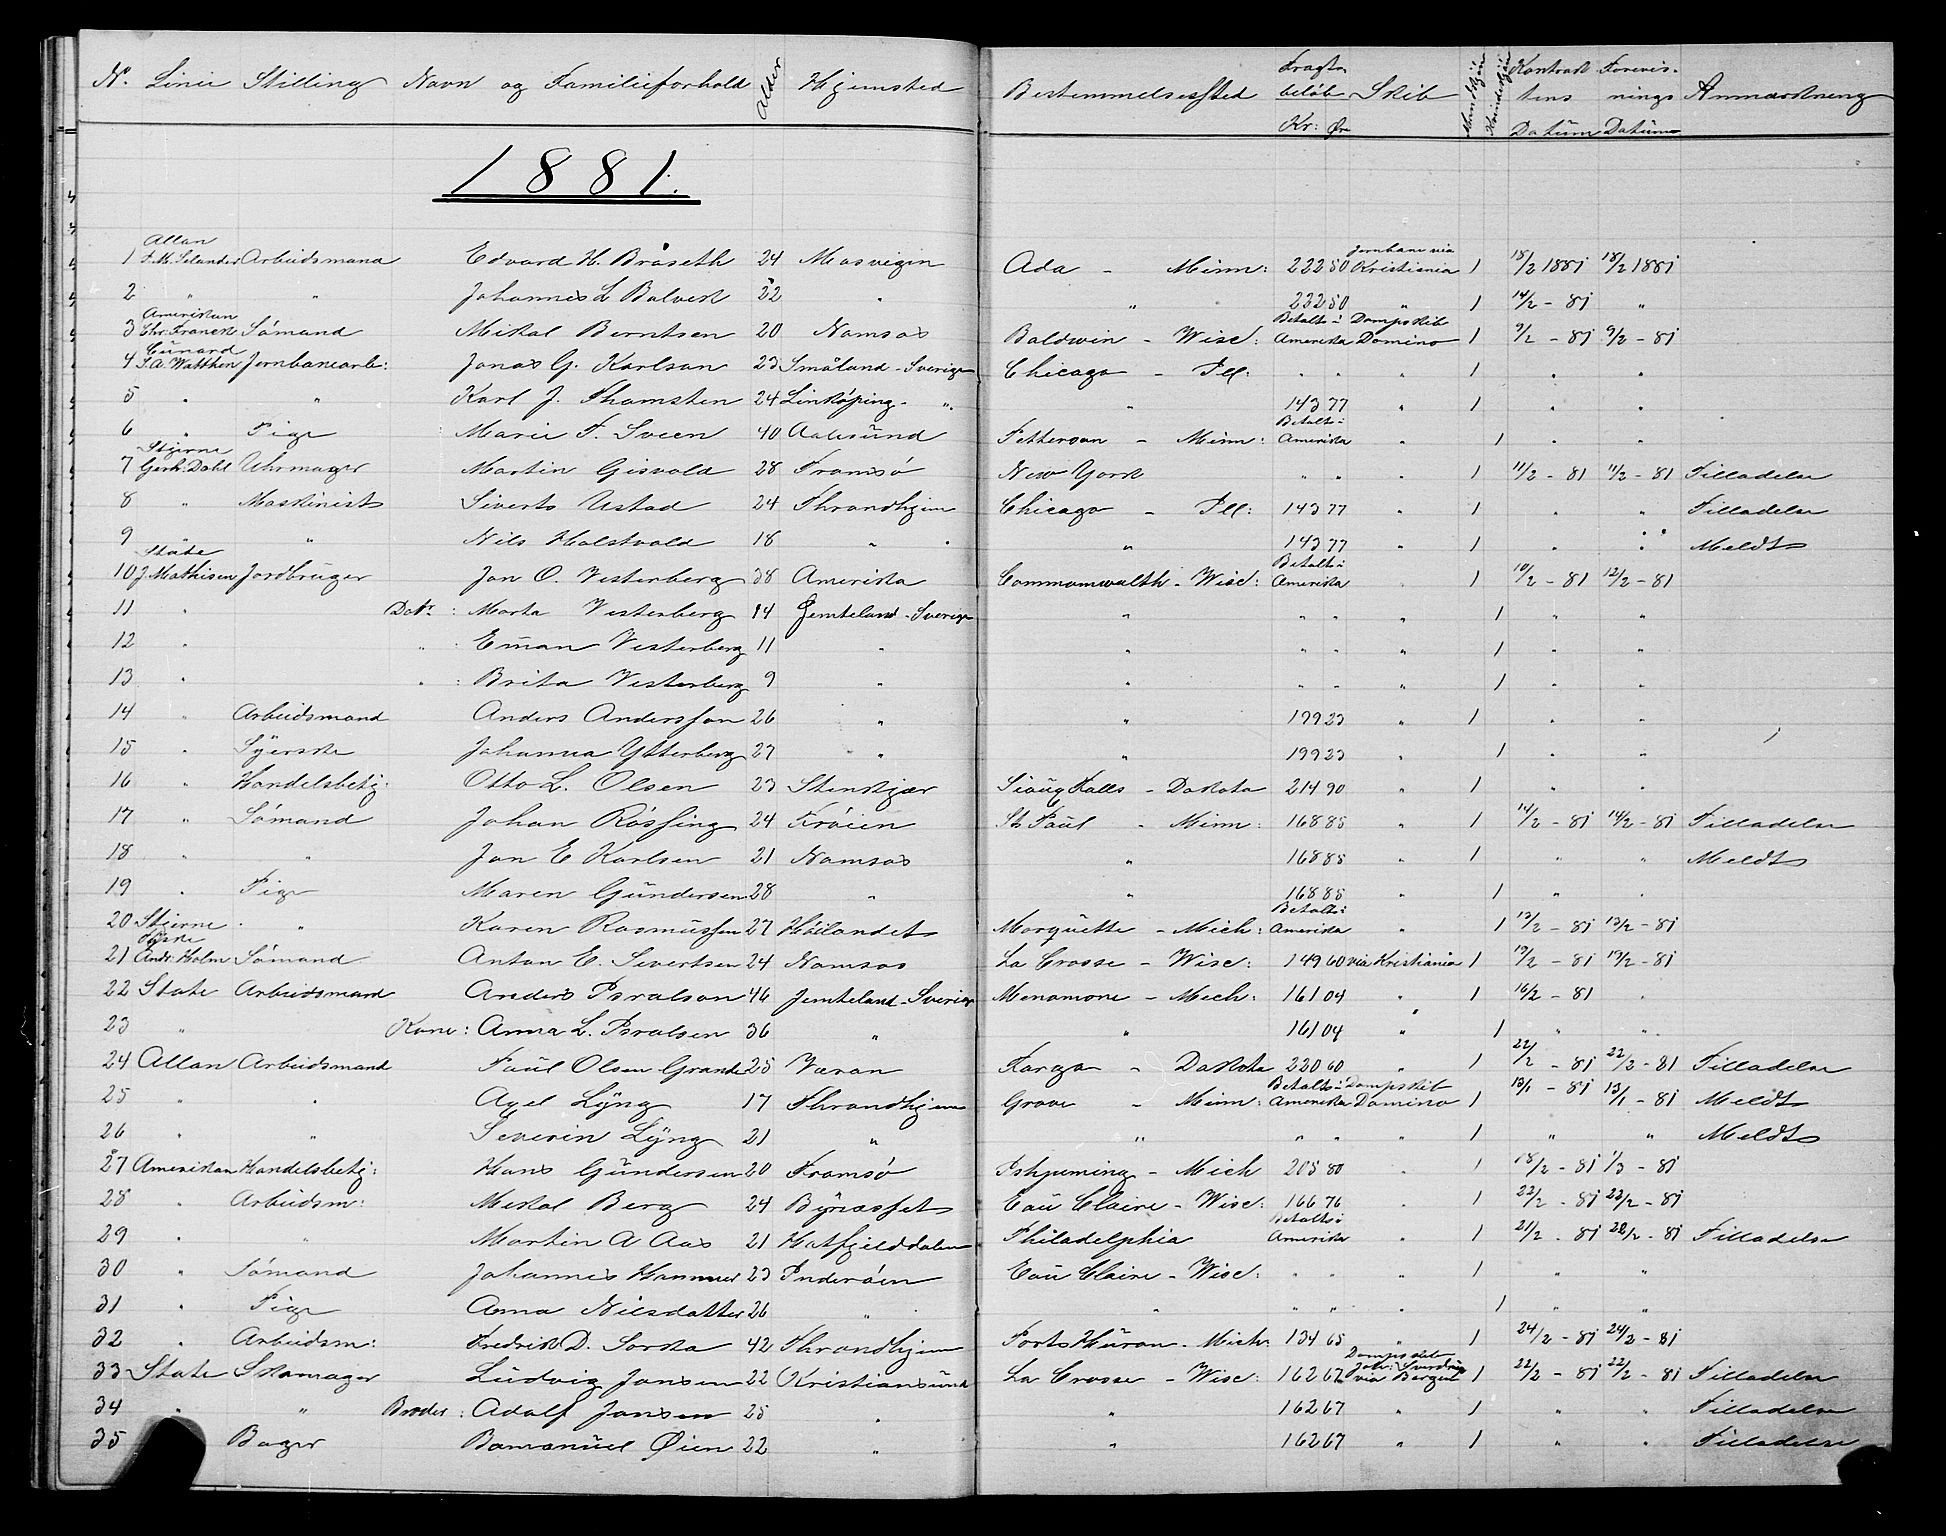 No. Linie Stilling Navn og Familieforhold Alder Hjemsted Bestemmelsessted Fragtbeløb Kr: Øre Skib Mandkjøn Kvindekjön Kontraktens Datum Forevisnings Datum Anmærkning
1881.
1 Allan Arbeidsmand Edvard H. Bråseth 24 Mosvigen Ada - Minn: 222 50 Jernbane via Kristiania 1 18/2 1881 18/2 1881
2 " " Johannes L 22 " " 222 50 " 1 14/2 - 81 "
3 Amerikan Chr. Franck Sömand Mikal Berntsen 20 Namsos Baldwin - Wisc: Betalt i Amerika Dampskib Domino 1 9/2 - 81 9/2 - 81
4 Cunard Jernbanearb: Jonas G. Karlson 23 Småland - Sverige Chicago - Ill: " " " 1 " "
5 " " Karl J. Thomsten 24 Linköping - " " 143 77 " 1 " "
6 " Pige Marie F. Sveen 40 Aalesund Petterson - Minn: Betalt i Amerika " 1 " "
7 Stjerne Gerh: Dahl Uhrmager Martin Gisvold 28 Tromsö New York " " " 1 11/2 - 81 11/2 - 81 Tilladelse
8 " Maskinist Siverts Ustad 24 Throndhjem Chicago - Ill: 143 77 " 1 " " Tilladelse
9 " " Nils Holstvold 18 " " 143 77 " 1 " " Meldt
10 State J. Mathisen Jordbruger Jon O. Vesterberg 38 Amerika Commonwealth - Wisc: Betalt i Amerika " 1 10/2 - 81 12/2 - 81
11 " Dat.: Marta Vesterberg 14 Jemteland - Sverige " " " " 1 " "
12 " " : Vesterberg 11 " " " " " 1 " "
13 " " : Brita Vesterberg 9 " " " " " 1 " "
14 " Arbeidsmand Anders Andersson 26 " " 199 23 " 1 " "
15 " Syerske Johanna Ytterberg 27 " " 199 23 " 1 " "
16 " Handelsbetj: Otto L. Olsen 23 Stenkjær Sioux Falls - Dakota 214 90 " 1 " "
17 " Sömand Johan Røssing 24 Frøien St Paul - Minn: 168 85 " 1 14/2 - 81 14/2 - 81 Tilladelse
18 " " Jon E Karlsen 21 Namsos " 168 85 " 1 " " Meldt
19 " Pige Maren Gundersen 28 " " 168 85 " 1 " "
20 Stjerne " Karen Rasmussen 27 Höilandet Marquette - Mich: Betalt i Amerika " 1 13/2 - 81 13/2 - 81
21 Andr: Holm Sömand Anton E. Sivertsen 24 Namsos La Crosse - Wisc: 149 60 via Kristiania 1 19/2 - 81 19/2 - 81
22 State Arbeidsmand Anders Isralson 46 Jemteland - Sverige Menomone - Mich: 161 04 " 1 16/2 - 81 "
23 " Kone: Anna L. Isralsen 36 " " 161 04 " 1 " "
24 Allan Arbeidsmand Paul Olsen Grande 25 Væran Fargo - Dakota 220 60 " 1 22/2 - 81 22/2 - 81 Tilladelse
25 " " Axel Lyng 17 Throndhjem Grove - Minn: Betalt i Amerika Dampskib Domino 1 13/1 - 81 13/1 - 81 Meldt
26 " " Severin Lyng 21 " " " " " 1 " " Meldt
27 Amerikan Handelsbetj: Hans Gundersen 20 Tromsö Ishpeming - Mich 205 80 " 1 18/2 - 81 1/3 - 81
28 " Arbeidsm: Mikal Berg 24 Bynæsset Eau Claire - Wisc: 166 76 " 1 23/2 - 81 23/2 - 81
29 " " Martin A Aas 21 Hatfjelddalen Philadelphia Betalt i Amerika " 1 21/2 - 81 22/2 - 81 Tilladelse
30 " Sömand Johannes Hammer 23 Inderöen Eau Claire - Wisc: " " " 1 " "
31 " Pige Anna Nilsdatter 26 " " " " " 1 " "
32 " Arbeidsm: Fredrik D. Sorka 42 Throndhjem Port Huron - Mich: 134 65 " 1 24/2 - 81 24/2 - 81
33 State Skomager Ludvig Jansen 22 Kristiansund La Crosse - Wisc: 162 67 Dampskib Joh: Sverdrup via Bergen 1 22/2 - 81 22/2 - 81 Tilladelse
34 " " Broder: Adolf Jansen 25 " " 162 67 " 1 " " Tilladelse
35 Bager Øien 22 " " 162 67 " 1 " " Tilladelse